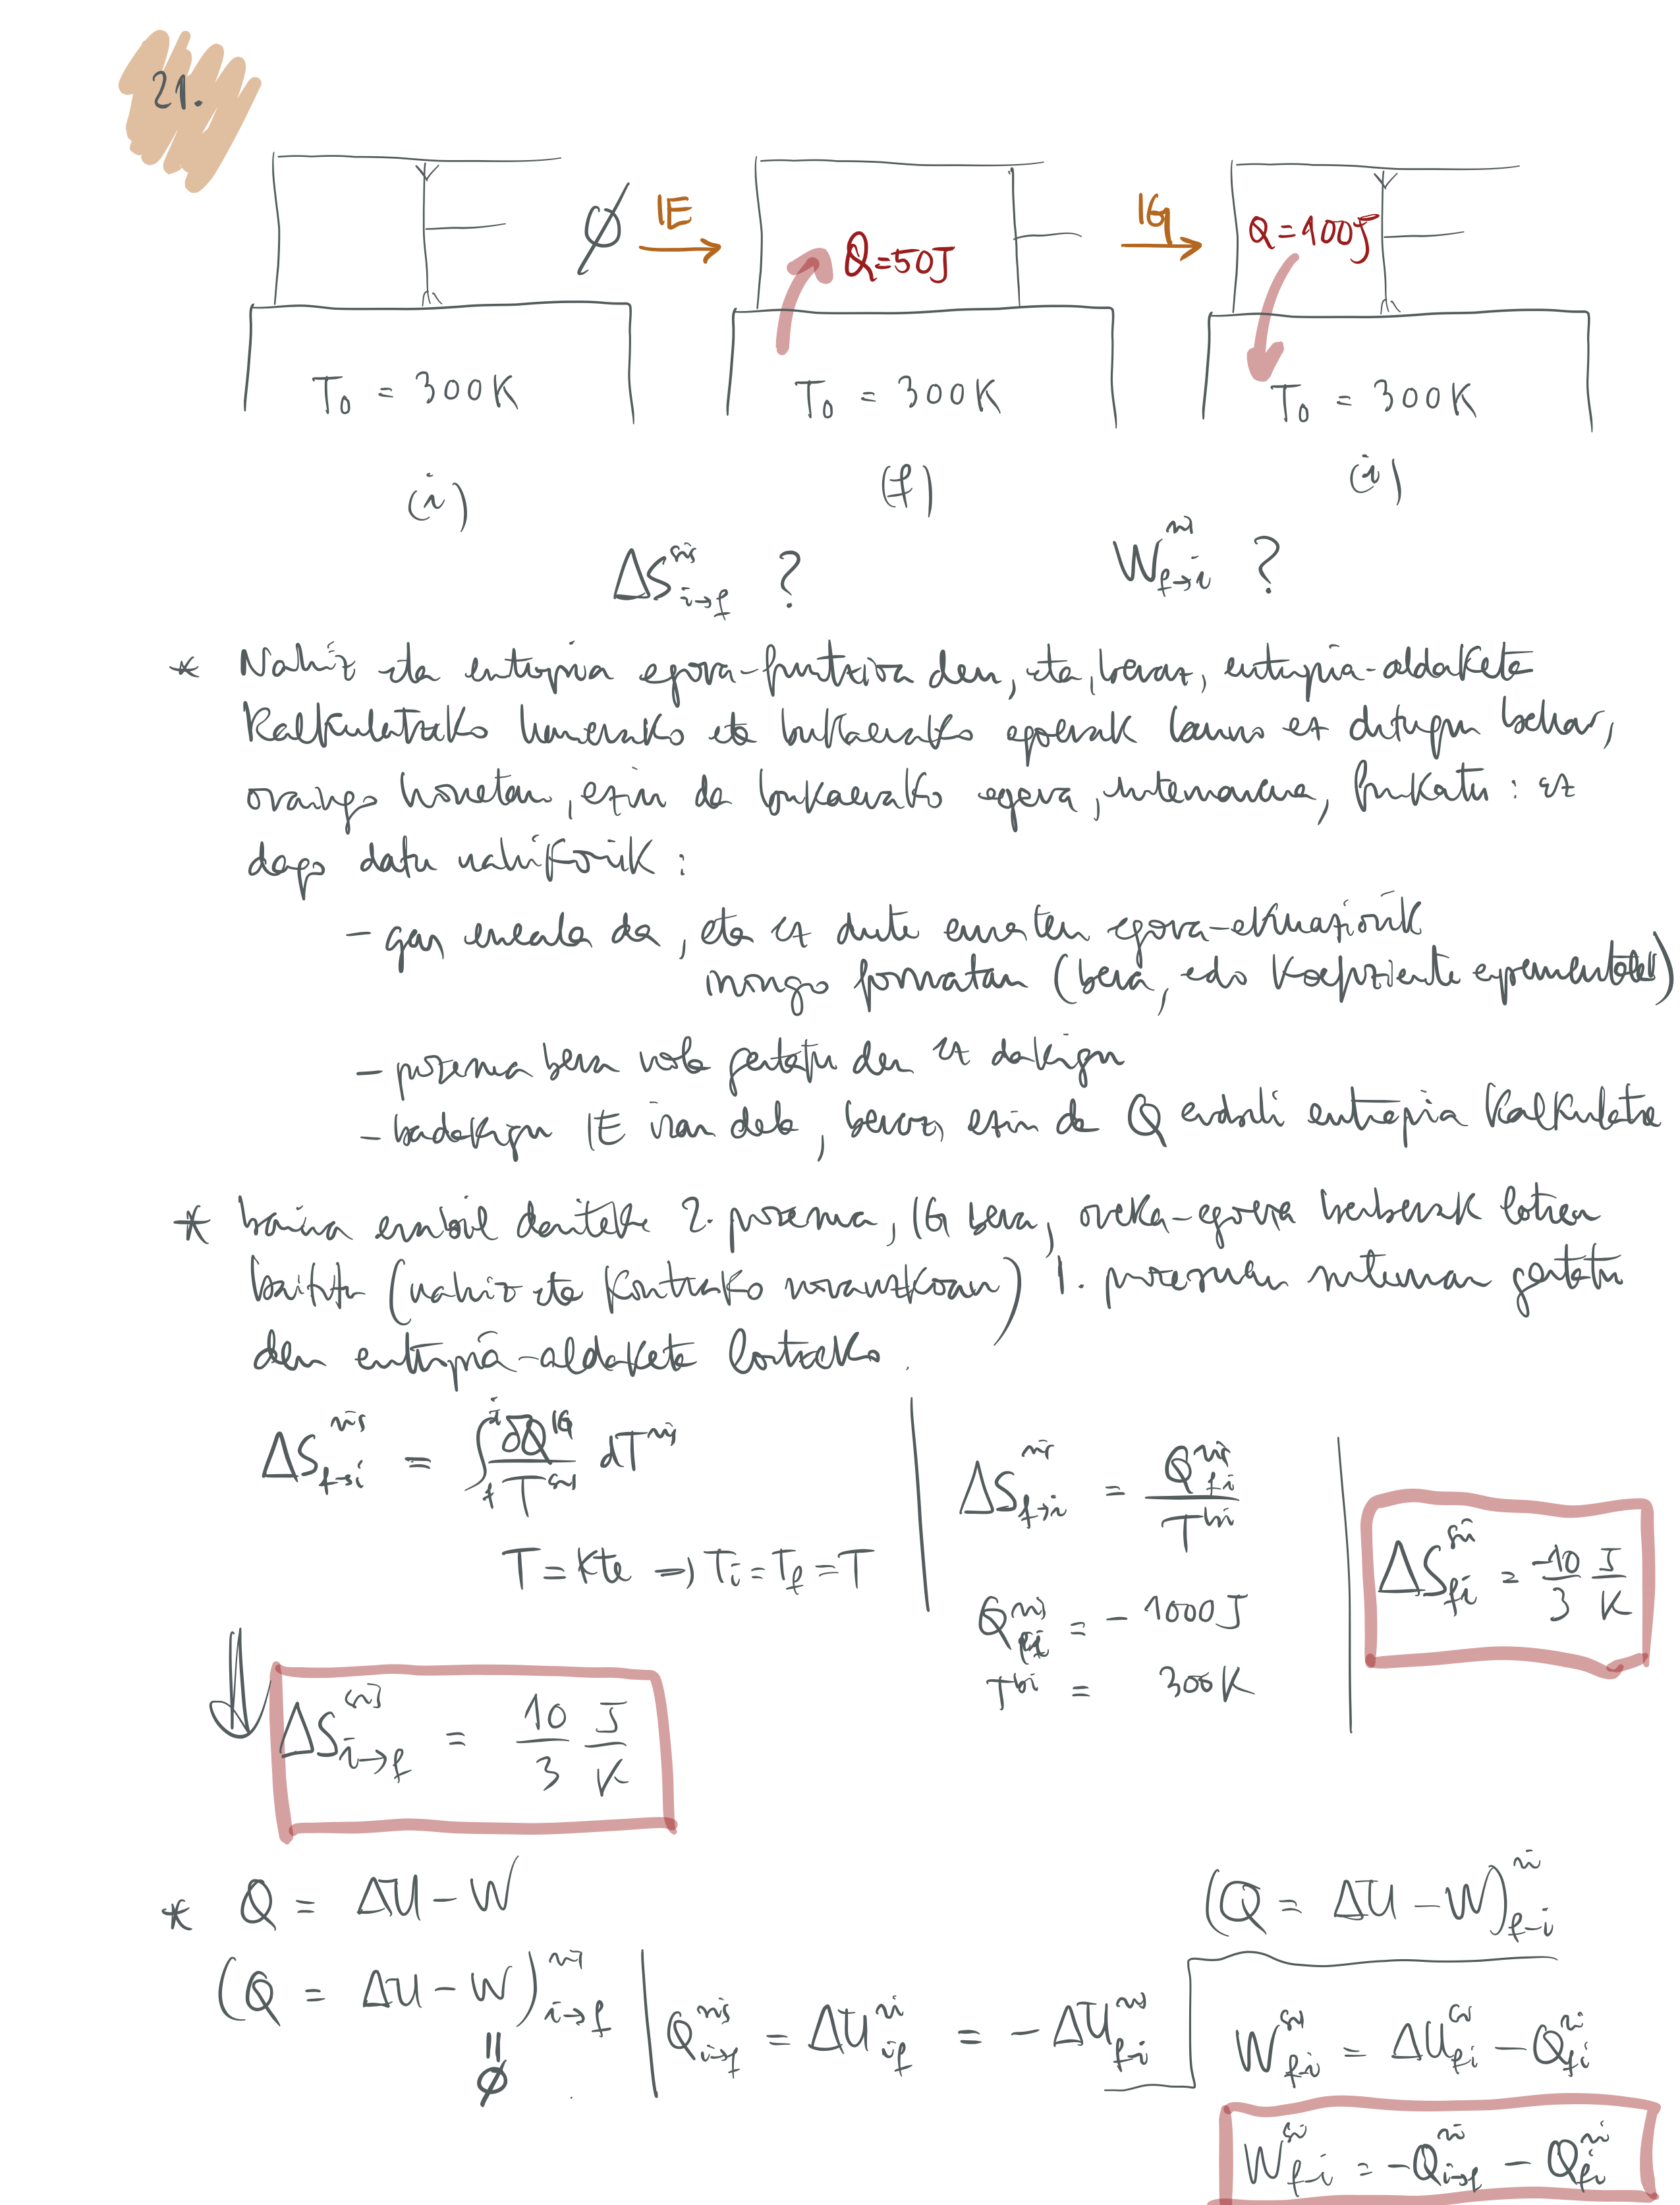 21.
∅ IE IG
Q=50J Q=100J
T₀ = 300K T₀ = 300K T₀ = 300K
(i) (f) (i)
ΔS i→f ? W f→i ?
* Nahiz eta entropia egoera-funtzioa den, eta, beraz, entropia-aldaketa
kalkulatzeko hasierako eta bukaerako egoerak baino ez ditugun behar,
oraingo honetan, ezin da bukaerako egoera, finkatu : ez
dago datu nahikorik :
- gas da, eta ez dute ematen egoera-ekuaziorik
inongo formatan (bera, edo koefiziente esperimentalak)
- prozesua bera nola gertatu den ez dakigu
- badakigu IE izan dela, beraz, ezin da Q erabili entropia kalkulatze
* baina erabil daiteke 2. prozesua, IG bera, oreka-egoera berberak lotzen
baititu (nahiz eta kontrako noranzkoan) 1. prozesuan gertatu
den entropia-aldaketa lortzeko.
ΔS f→i = ∫ δQ^IG / T dT
T = kte → Ti = Tf = T
ΔS f→i = Q fi / T
Q = - 1000J
T = 300K
ΔS fi = -10/3 J/K
ΔS i→f = 10/3 J/K
* Q = ΔU - W
(Q = ΔU - W) i→f
= ∅
Q i→f = ΔU if = - ΔU f-i
(Q = ΔU - W) f-i
W f-i = ΔU fi - Q fi
W f-i = -Q i→f - Q fi